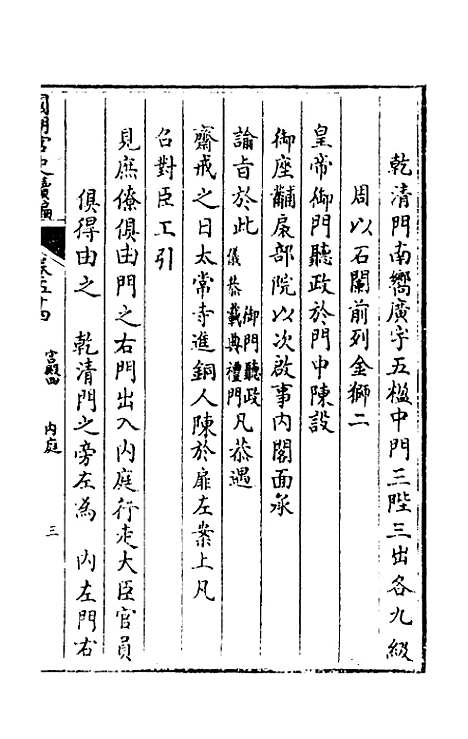 乾清門南嚮廣宇五楹中門三陛三出各九級
周以石闌前列金獅二
皇帝御門聽政於門中陳設
御座黼扆部院以次啟事內閣面承
諭旨於此御門聽政儀恭載典禮門凡恭遇
齋戒之日太常寺進銅人陳於扉左案上凡
召對臣工引
見庶僚俱由門之右門出入內庭行走大臣官員
俱得由之 乾清門之旁左為 內左門右
國朝宮史續編 卷五十四 宮殿四 內庭 三